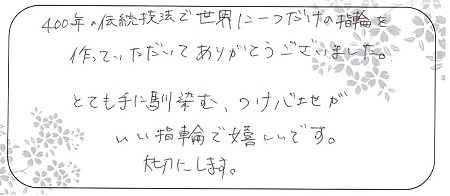 400年の伝統技法で世界に一つだけの指輪を
作っていただいてありがとうございました。
とても手に馴染む、つけ心地が
いい指輪で嬉しいです。
大切にします。